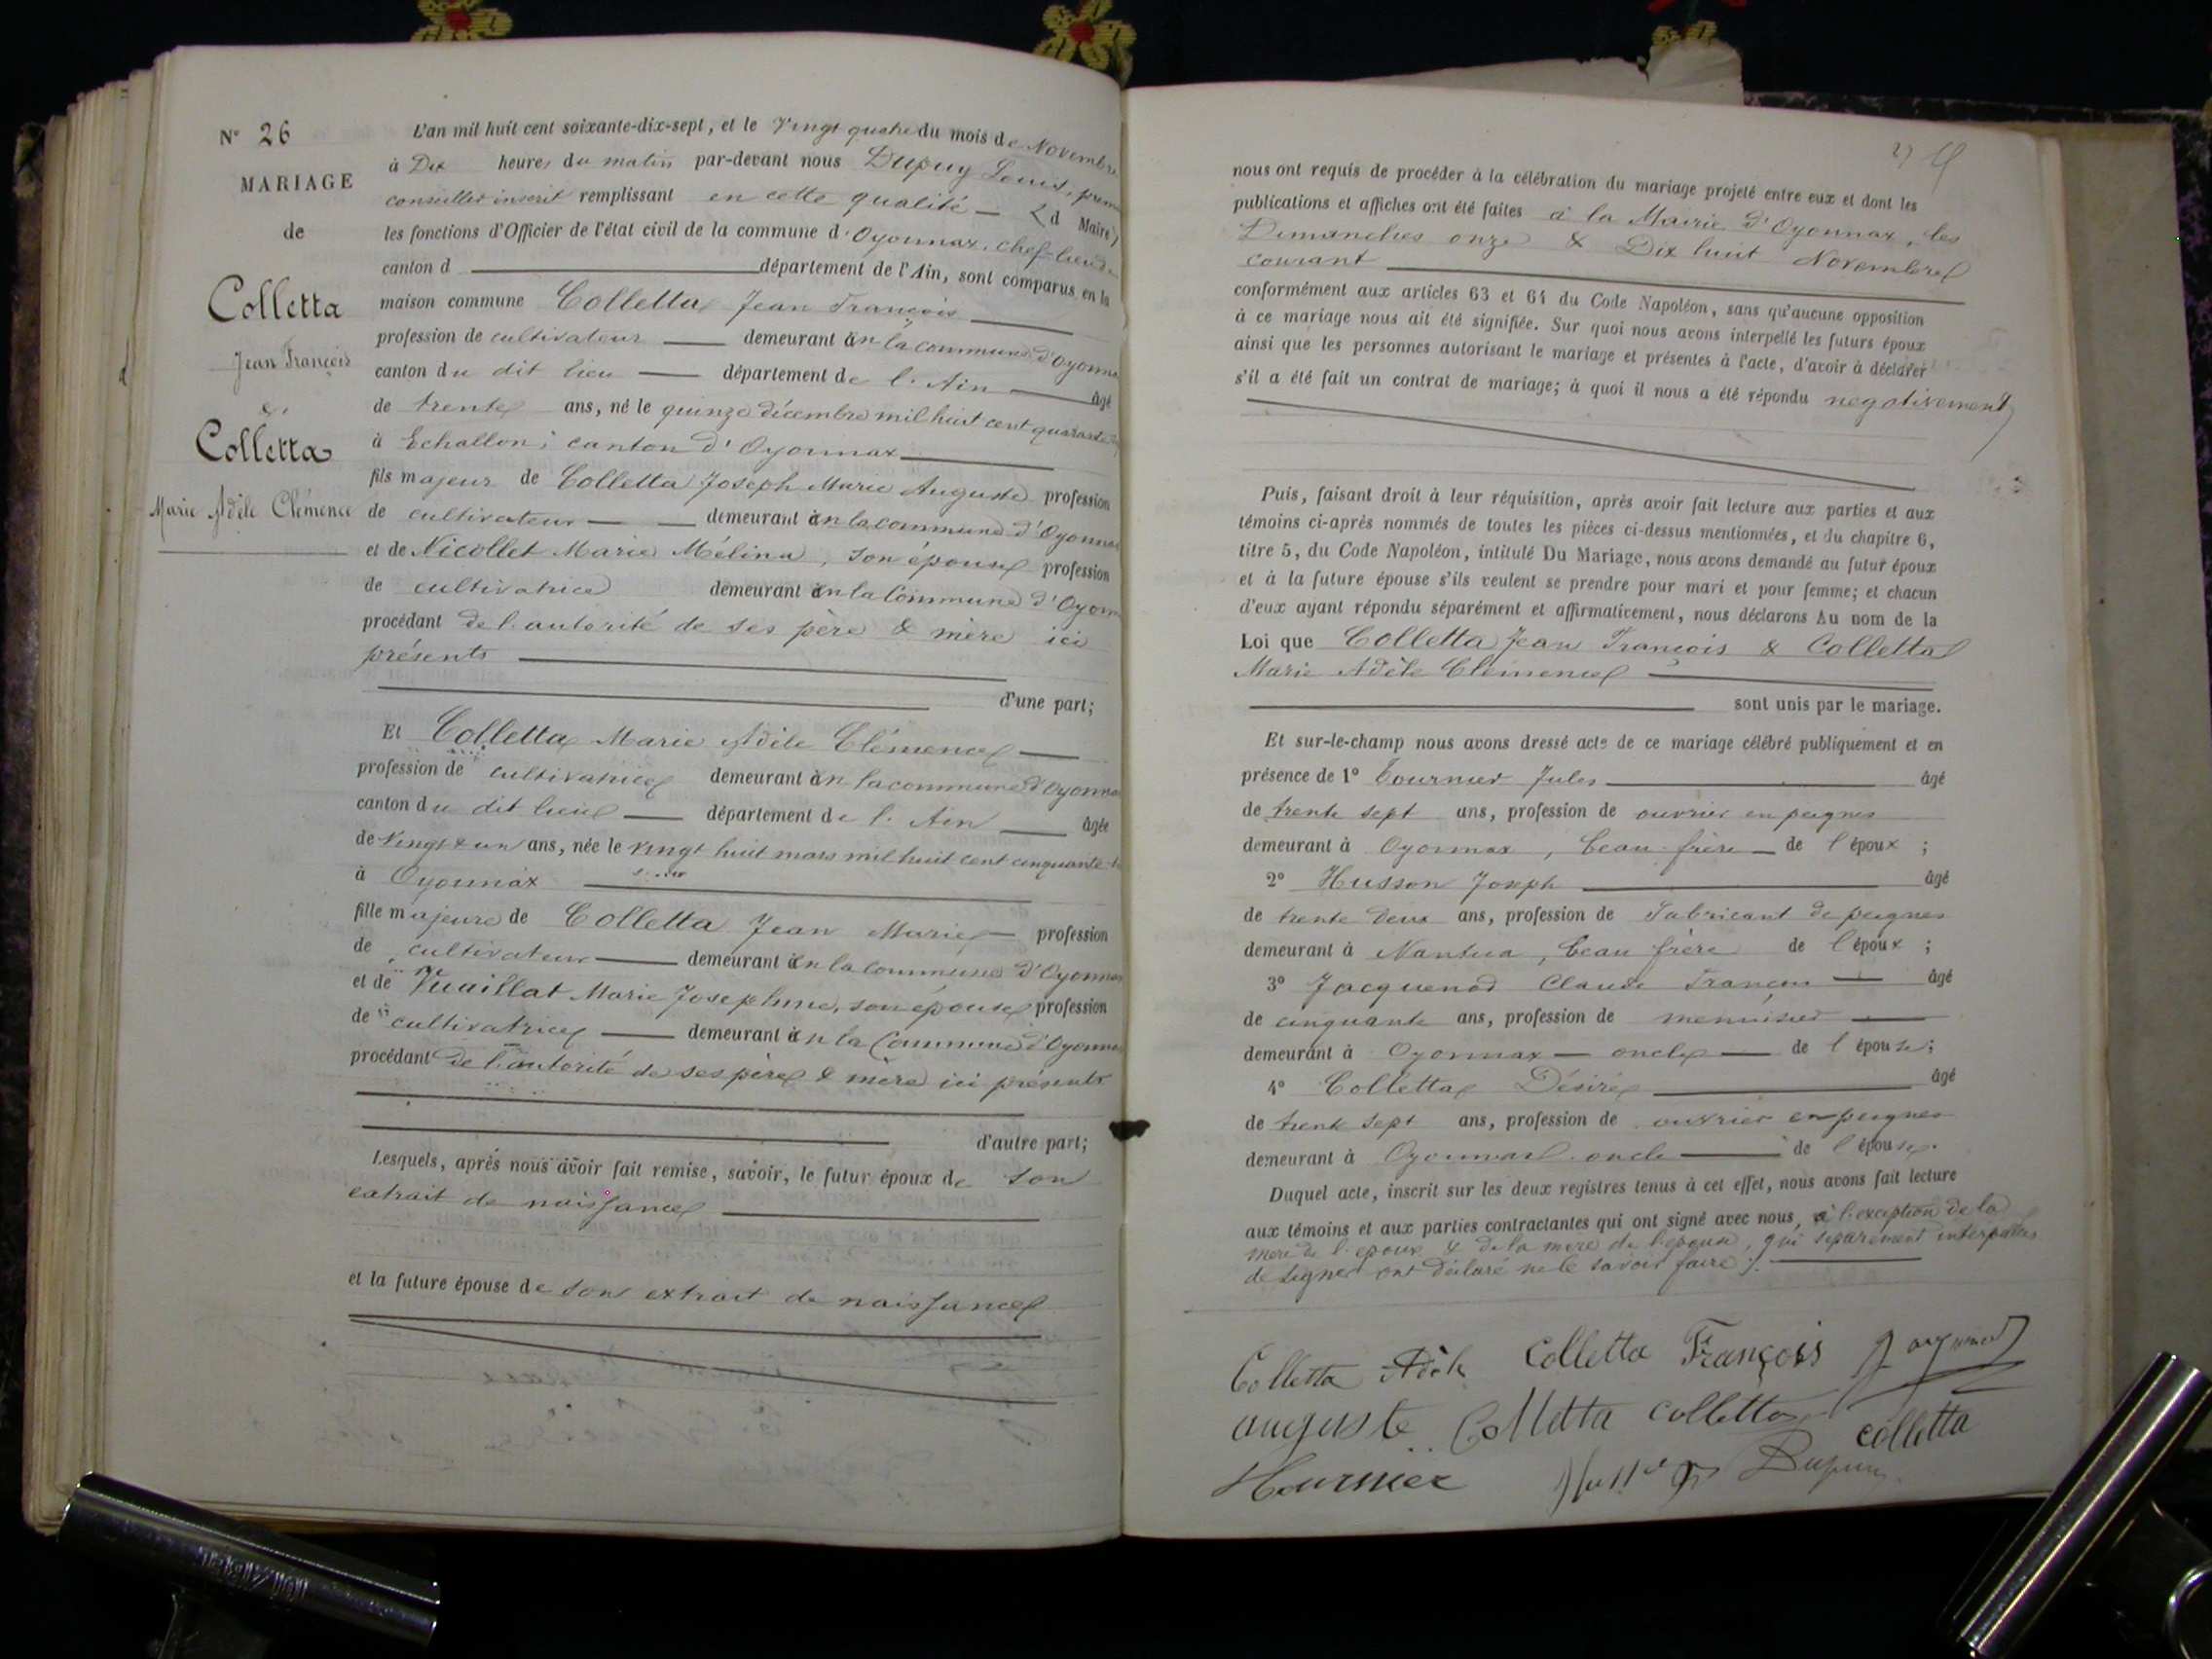 Nº 26
MARIAGE
de
Colletta
Jean François
&
Colletta
Marie Adèle Clémence
L'an mil huit cent soixante-dix-sept, et le Vingt quatre du mois de Novembre
à Dix heures du matin par-devant nous Dupuy Louis, premier
conseiller inscrit remplissant en cette qualité — (d Maire)
les fonctions d'Officier de l'état civil de la commune d'Oyonnax, chef-lieu de
canton d — département de l'Ain, sont comparus en la
maison commune Colletta Jean François —
profession de cultivateur — demeurant en la commune d'Oyonnax
canton du dit lieu — département de l'Ain — âgé
de trente ans, né le quinze décembre mil huit cent quarante
à Echallon, canton d'Oyonnax —
fils majeur de Colletta Joseph Marie Auguste profession
de cultivateur — demeurant en la commune d'Oyonnax
et de Nicollet Marie Mélina, son épouse profession
de cultivatrice demeurant en la Commune d'Oyonnax
procédant de l'autorité de ses père & mère ici
présents —
d'une part;
Et Colletta Marie Adèle Clémence —
profession de cultivatrice demeurant en la commune d'Oyonnax
canton du dit lieu — département de l'Ain — âgée
de Vingt & un ans, née le vingt huit mars mil huit cent cinquante
à Oyonnax —
fille majeure de Colletta Jean Marie — profession
de cultivateur — demeurant en la commune d'Oyonnax
et de Vuaillat Marie Josephine, son épouse profession
de cultivatrice — demeurant en la Commune d'Oyonnax
procédant de l'autorité de ses père & mère ici présents
d'autre part;
Lesquels, après nous avoir fait remise, savoir, le futur époux de son
extrait de naissance —
et la future épouse de son extrait de naissance
nous ont requis de procéder à la célébration du mariage projeté entre eux et dont les
publications et affiches ont été faites à la Mairie d'Oyonnax, les
Dimanches onze & Dix huit Novembre
courant —
conformément aux articles 63 et 64 du Code Napoléon, sans qu'aucune opposition
à ce mariage nous ait été signifiée. Sur quoi nous avons interpellé les futurs époux
ainsi que les personnes autorisant le mariage et présentes à l'acte, d'avoir à déclarer
s'il a été fait un contrat de mariage; à quoi il nous a été répondu negativement
Puis, faisant droit à leur réquisition, après avoir fait lecture aux parties et aux
témoins ci-après nommés de toutes les pièces ci-dessus mentionnées, et du chapitre 6,
titre 5, du Code Napoléon, intitulé Du Mariage, nous avons demandé au futur époux
et à la future épouse s'ils veulent se prendre pour mari et pour femme; et chacun
d'eux ayant répondu séparément et affirmativement, nous déclarons Au nom de la
Loi que Colletta Jean François & Colletta
Marie Adèle Clémence —
sont unis par le mariage.
Et sur-le-champ nous avons dressé acte de ce mariage célébré publiquement et en
présence de 1º Tournier Jules — âgé
de trente sept ans, profession de ouvrier en peignes
demeurant à Oyonnax, beau-frère — de l'époux;
2º Husson Joseph — âgé
de trente deux ans, profession de Fabricant de peignes
demeurant à Nantua, beau frère de l'époux;
3º Jacquenod Claude François — âgé
de cinquante ans, profession de menuisier —
demeurant à Oyonnax — oncle — de l'épouse;
4º Colletta Désiré — âgé
de trente sept ans, profession de ouvrier en peignes
demeurant à Oyonnax oncle — de l'épouse.
Duquel acte, inscrit sur les deux registres tenus à cet effet, nous avons fait lecture
aux témoins et aux parties contractantes qui ont signé avec nous, à l'exception de la
mère de l'époux & de la mère de l'épouse, qui séparément interpellées
de signer ont déclaré ne le savoir faire. —
Colletta Adèle Colletta François
auguste Colletta colletta
colletta
Tournier Dupuy